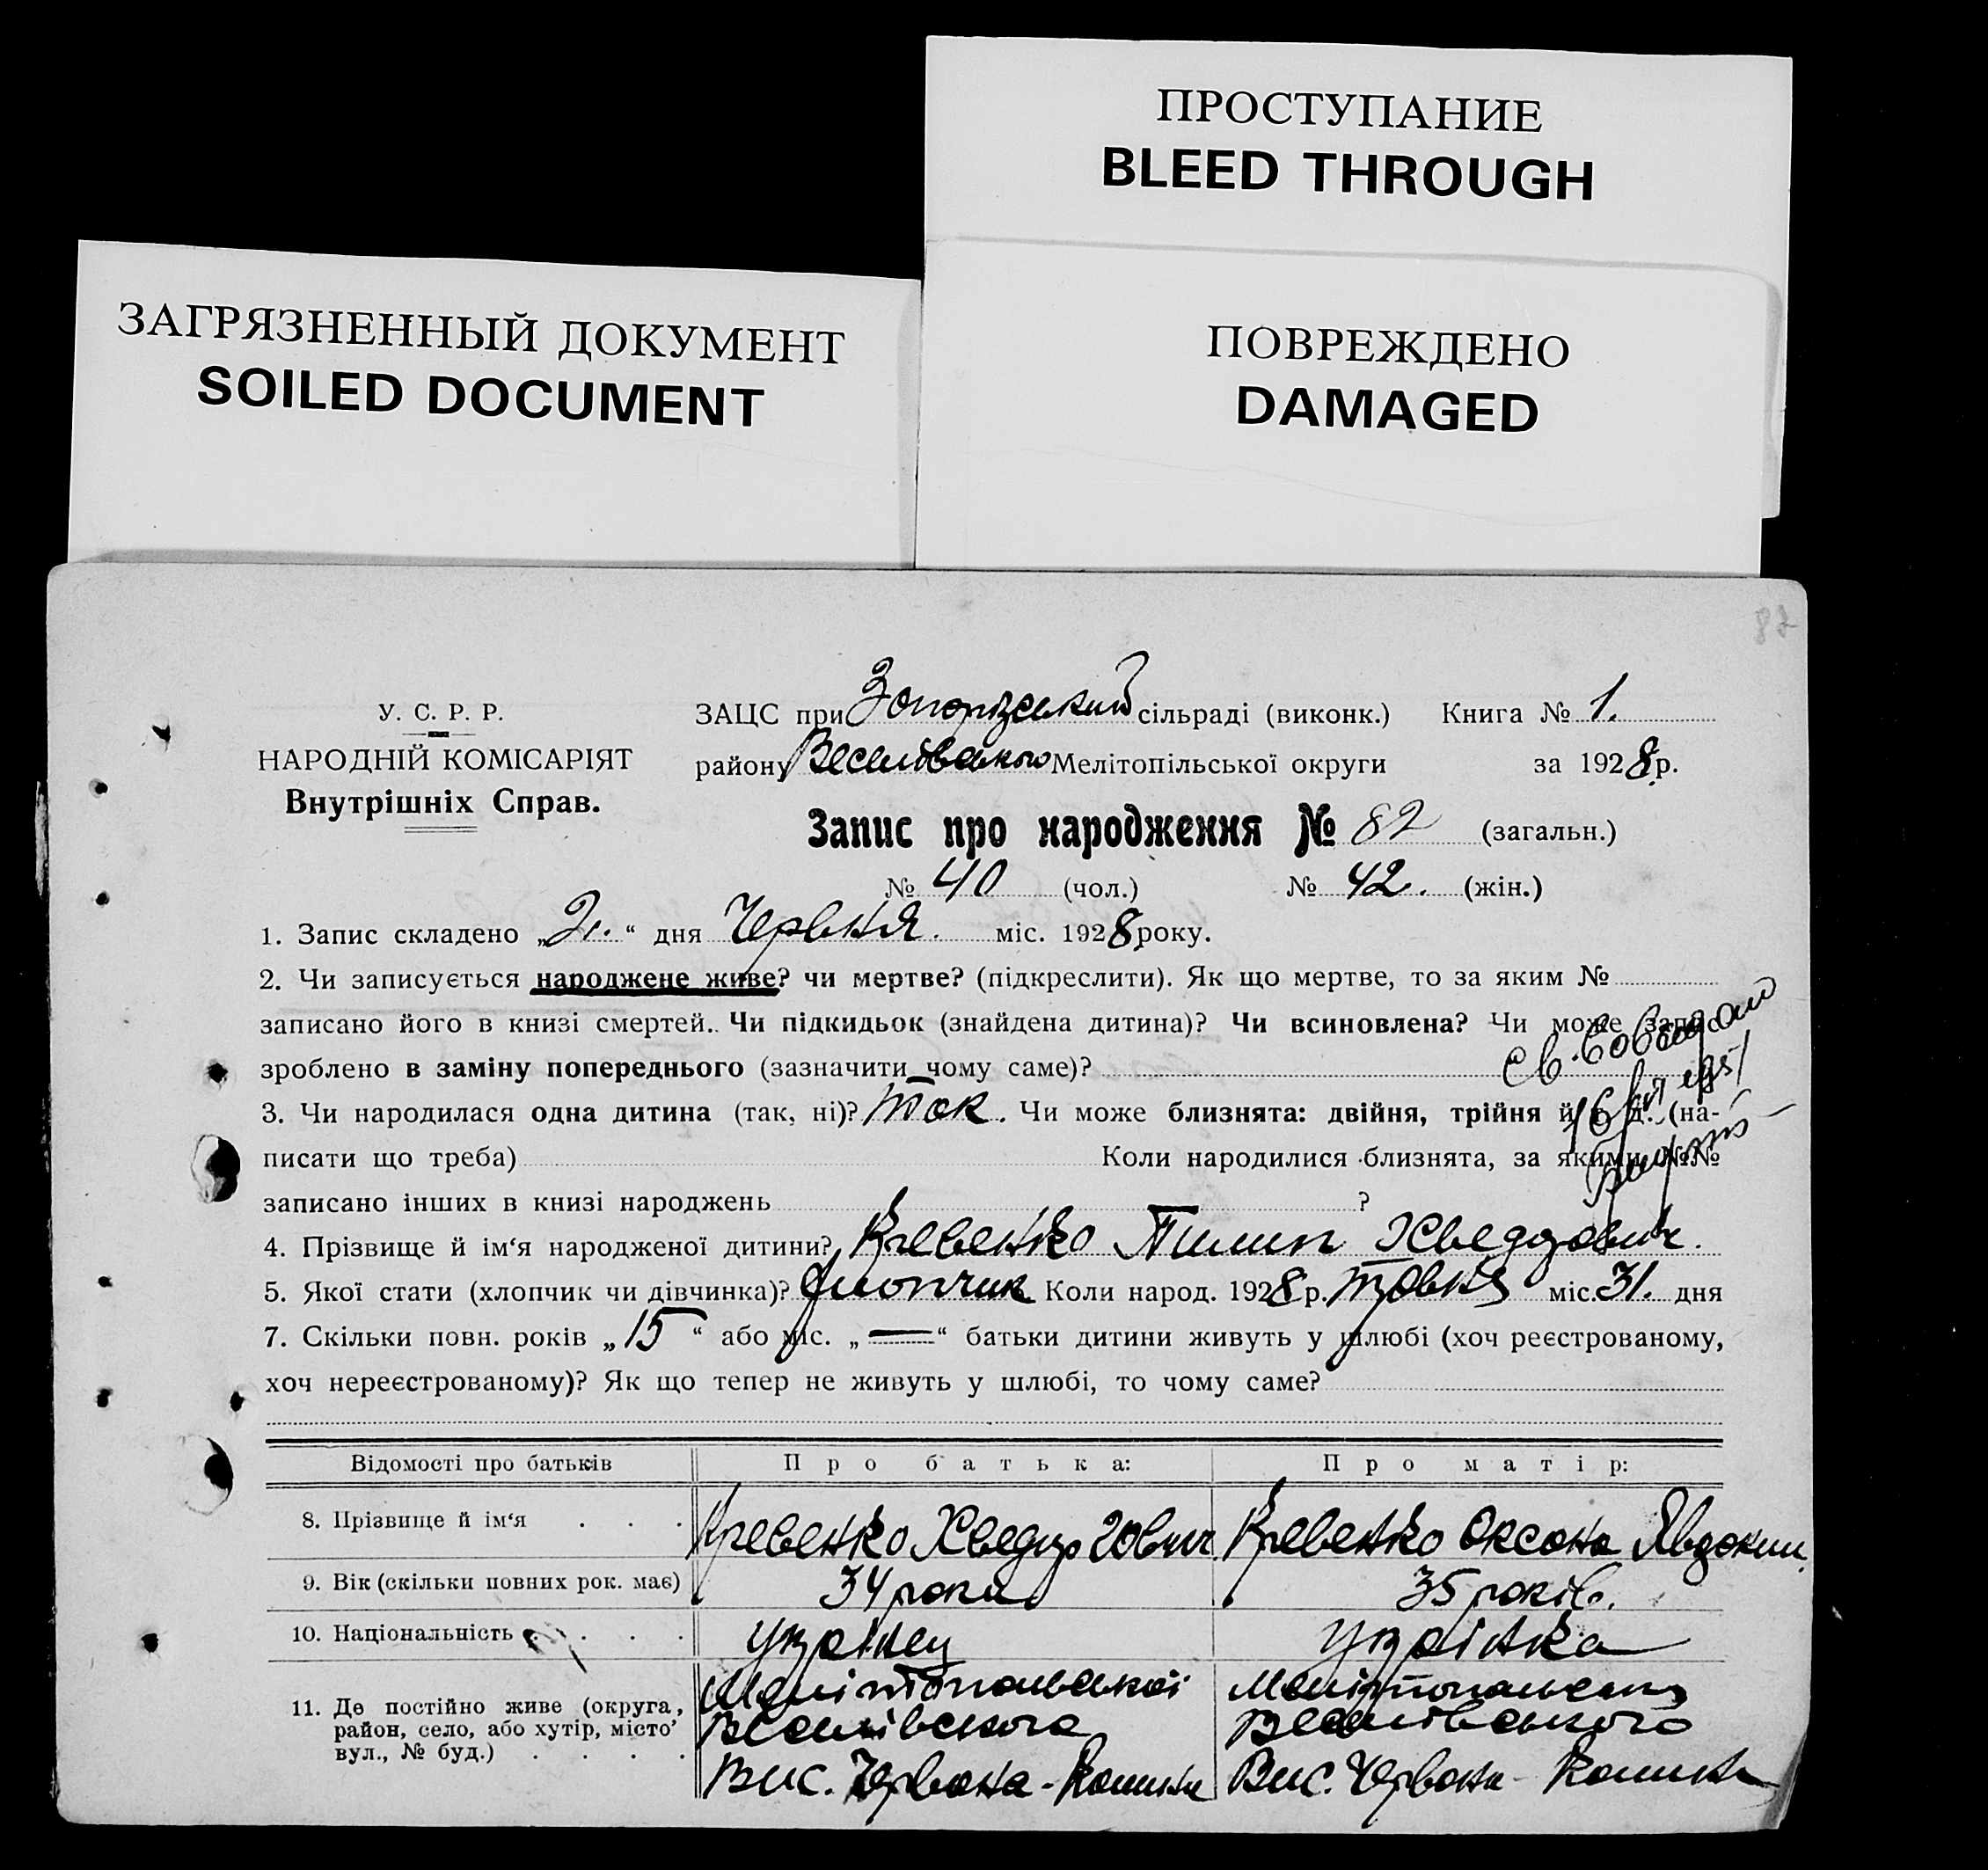 ПРОСТУПАНИЕ
BLEED THROUGH
ЗАГРЯЗНЕННЫЙ ДОКУМЕНТ
SOILED DOCUMENT
ПОВРЕЖДЕНО
DAMAGED
87
У. С. Р. Р.
НАРОДНІЙ КОМІСАРІЯТ
Внутрішніх Справ.
ЗАЦС при Запорізський сільраді (виконк.) Книга № 1.
району Веселівського Мелітопільської округи за 1928 р.
Запис про народження № 82 (загальн.)
№ 40 (чол.) № 42. (жін.)
1. Запис складено „ “ дня Червня. міс. 1928 року.
2. Чи записується народжене живе? чи мертве? (підкреслити). Як що мертве, то за яким №
записано його в книзі смертей. Чи підкидьок (знайдена дитина)? Чи всиновлена? Чи може запис
зроблено в заміну попереднього (зазначити чому саме)?
3. Чи народилася одна дитина (так, ні)? Так. Чи може близнята: двійня, трійня й т. д. (на-
писати що треба) Коли народилися близнята, за якими №№
записано інших в книзі народжень ?
4. Прізвище й ім‘я народженої дитини? Кревенко Пилип Хведорович.
5. Якої стати (хлопчик чи дівчинка)? Хлопчик Коли народ. 1928 р. Травня міс. 31. дня
7. Скільки повн. років „15“ або міс. „—“ батьки дитини живуть у шлюбі (хоч реєстрованому,
хоч нереєстрованому)? Як що тепер не живуть у шлюбі, то чому саме?
Відомості про батьків Про батька: Про матір:
8. Прізвище й ім‘я . . . Кревенко Хведор Кревенко Оксана Явдоким.
9. Вік (скільки повних рок. має) 34 роки 35 років.
10. Національність . . . . Украінец Украінка
11. Де постійно живе (округа,
район, село, або хутір, місто
вул., № буд.) . . . .
Мелітопольскої
Веселівського
Вис. Червона-
Веселівського
Вис. Червона-